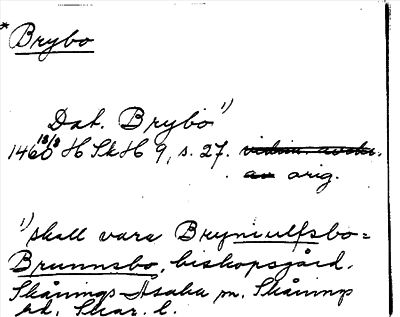 * Brybo
Dat. Brybo 1)
1460 18/8 H Sk H 9, s. 27. vidim. avskr.
av orig.
1) skall vara Bryniulfsbo =
Brunnsbo, biskopsgård.
Skånings-Åsaka sn. Skånings
hd. Skar. l.